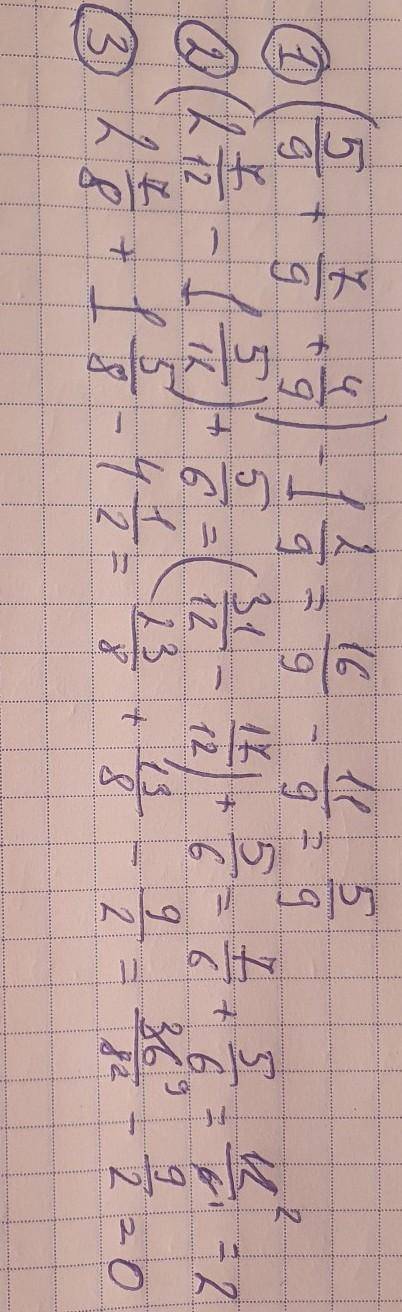 ① (5/9 + 7/9 + 4/9) - 1 2/9 = 16/9 - 11/9 = 5/9
② (2 7/12 - 1 5/12) + 5/6 = (31/12 - 17/12) + 5/6 = 7/6 + 5/6 = 12²/6¹ = 2
③ 2 7/8 + 1 5/8 - 4 1/2 = 23/8 + 13/8 - 9/2 = 36⁹/8² - 9/2 = 0